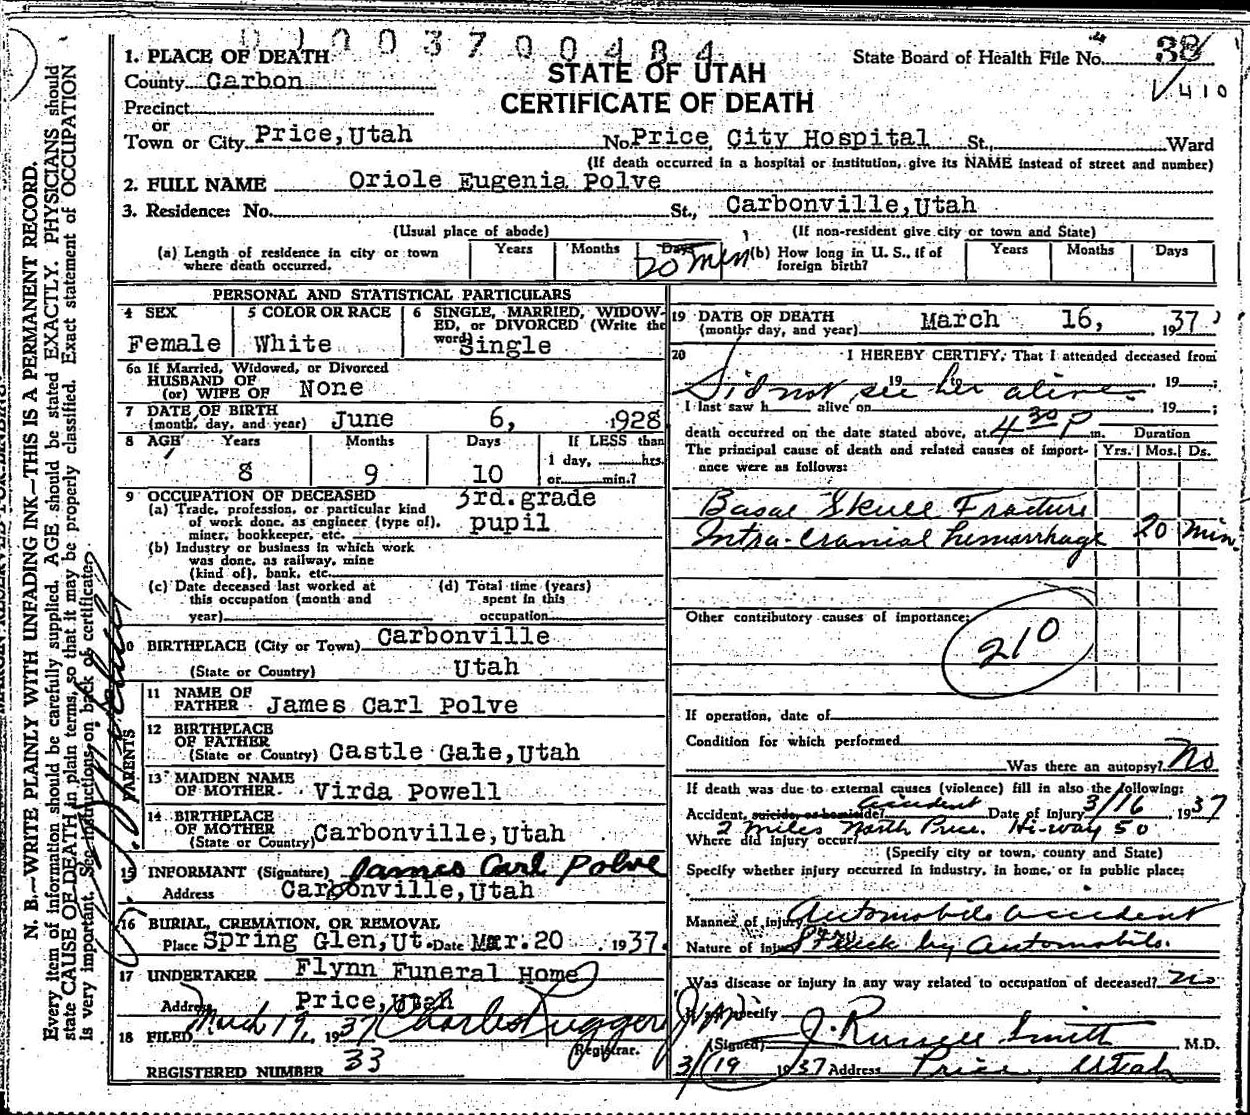 01003700484
1. PLACE OF DEATH
State Board of Health File No. 38
County Carbon
STATE OF UTAH
CERTIFICATE OF DEATH
410
Precinct
or
Town or City Price, Utah No. Price City Hospital St., Ward
(If death occurred in a hospital or institution, give its NAME instead of street and number)
2. FULL NAME Oriole Eugenia Polve
3. Residence: No. St., Carbonville, Utah
(Usual place of abode) (If non-resident give city or town and State)
(a) Length of residence in city or town where death occurred. Years Months Days 20 min
(b) How long in U. S., if of foreign birth? Years Months Days
PERSONAL AND STATISTICAL PARTICULARS
4 SEX Female
5 COLOR OR RACE White
6 SINGLE, MARRIED, WIDOWED, or DIVORCED (Write the word) Single
6a If Married, Widowed, or Divorced
HUSBAND OF
(or) WIFE OF None
7 DATE OF BIRTH
(month, day, and year) June 6, 1928
8 AGE Years Months Days If LESS than
1 day, hrs.
8 9 10 or min.?
9 OCCUPATION OF DECEASED 3rd. grade
(a) Trade, profession, or particular kind
of work done, as engineer (type of), pupil
miner, bookkeeper, etc.
(b) Industry or business in which work
was done, as railway, mine
(kind of), bank, etc.
(c) Date deceased last worked at
this occupation (month and
year)
(d) Total time (years)
spent in this
occupation
10 BIRTHPLACE (City or Town) Carbonville
(State or Country) Utah
PARENTS
11 NAME OF
FATHER James Carl Polve
12 BIRTHPLACE
OF FATHER
(State or Country) Castle Gate, Utah
13 MAIDEN NAME
OF MOTHER Virda Powell
14 BIRTHPLACE
OF MOTHER
(State or Country) Carbonville, Utah
15 INFORMANT (Signature) James Carl Polve
Address Carbonville, Utah
16 BURIAL, CREMATION, OR REMOVAL
Place Spring Glen, Ut. Date Mar. 20 1937.
17 UNDERTAKER Flynn Funeral Home
Address Price, Utah
18 FILED March 19, 1937 Charles Ruggeri
Registrar.
REGISTERED NUMBER 33
19 DATE OF DEATH
(month, day, and year) March 16, 1937
20 I HEREBY CERTIFY, That I attended deceased from
Did not see her alive 19 to , 19 ;
I last saw h alive on , 19 ;
death occurred on the date stated above, at 4 30 P m. Duration
The principal cause of death and related causes of importance were as follows: Yrs. Mos. Ds.
Basal Skull Fracture
Intra-cranial hemorrhage 20 min.
Other contributory causes of importance:
210
If operation, date of
Condition for which performed
Was there an autopsy? No
If death was due to external causes (violence) fill in also the following:
accident
Accident, suicide, or homicide? Date of injury 3/16 1937
2 miles North Price. Hi-way 50
Where did injury occur?
(Specify city or town, county and State)
Specify whether injury occurred in industry, in home, or in public place:
Manner of injury Automobile accident
Nature of injury Struck by Automobile.
Was disease or injury in any way related to occupation of deceased? no
If so, specify
(Signed) J. Russell Smith M.D.
3/19 1937 Address Price, Utah
MARGIN RESERVED FOR BINDING
N. B.—WRITE PLAINLY WITH UNFADING INK—THIS IS A PERMANENT RECORD.
Every item of information should be carefully supplied. AGE should be stated EXACTLY. PHYSICIANS should
state CAUSE OF DEATH in plain terms, so that it may be properly classified. Exact statement of OCCUPATION
is very important. See instructions on back of certificate.